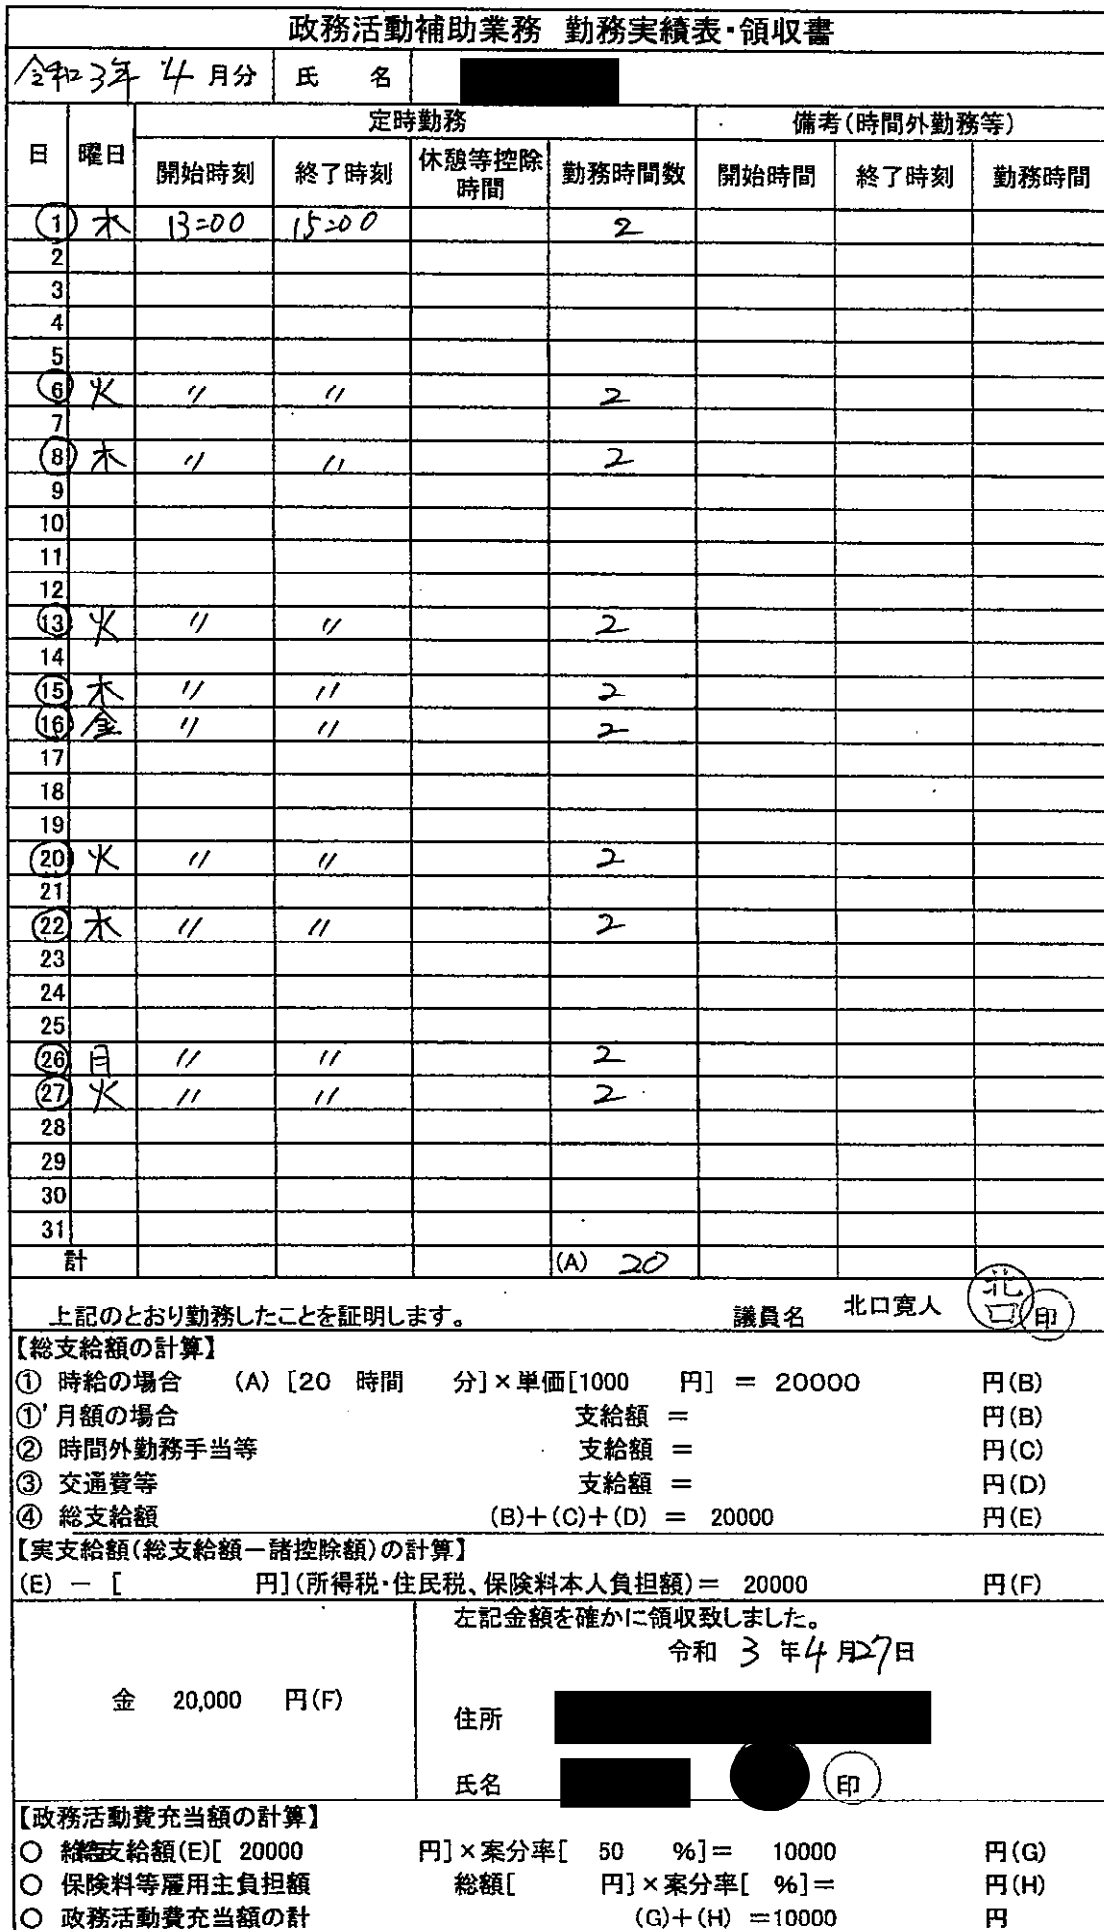 政務活動補助業務 勤務実績表・領収書
令和3年 4 月分 氏 名
日 曜日 定時勤務 備考(時間外勤務等)
開始時刻 終了時刻 休憩等控除時間 勤務時間数 開始時間 終了時刻 勤務時間
1 木 13:00 15:00 2
2
3
4
5
6 火 〃 〃 2
7
8 木 〃 〃 2
9
10
11
12
13 火 〃 〃 2
14
15 木 〃 〃 2
16 金 〃 〃 2
17
18
19
20 火 〃 〃 2
21
22 木 〃 〃 2
23
24
25
26 月 〃 〃 2
27 火 〃 〃 2
28
29
30
31
計 (A) 20
上記のとおり勤務したことを証明します。 議員名 北口寛人 北口 印
【総支給額の計算】
① 時給の場合 (A) [20 時間 分]×単価[1000 円] = 20000 円(B)
①' 月額の場合 支給額 = 円(B)
② 時間外勤務手当等 支給額 = 円(C)
③ 交通費等 支給額 = 円(D)
④ 総支給額 (B)+(C)+(D) = 20000 円(E)
【実支給額(総支給額-諸控除額)の計算】
(E) - [ 円](所得税・住民税、保険料本人負担額)= 20000 円(F)
左記金額を確かに領収致しました。
令和 3 年4月27日
金 20,000 円(F)
住所
氏名 印
【政務活動費充当額の計算】
○ 総支給額(E)[ 20000 円]×案分率[ 50 %]= 10000 円(G)
○ 保険料等雇用主負担額 総額[ 円]×案分率[ %]= 円(H)
○ 政務活動費充当額の計 (G)+(H) =10000 円